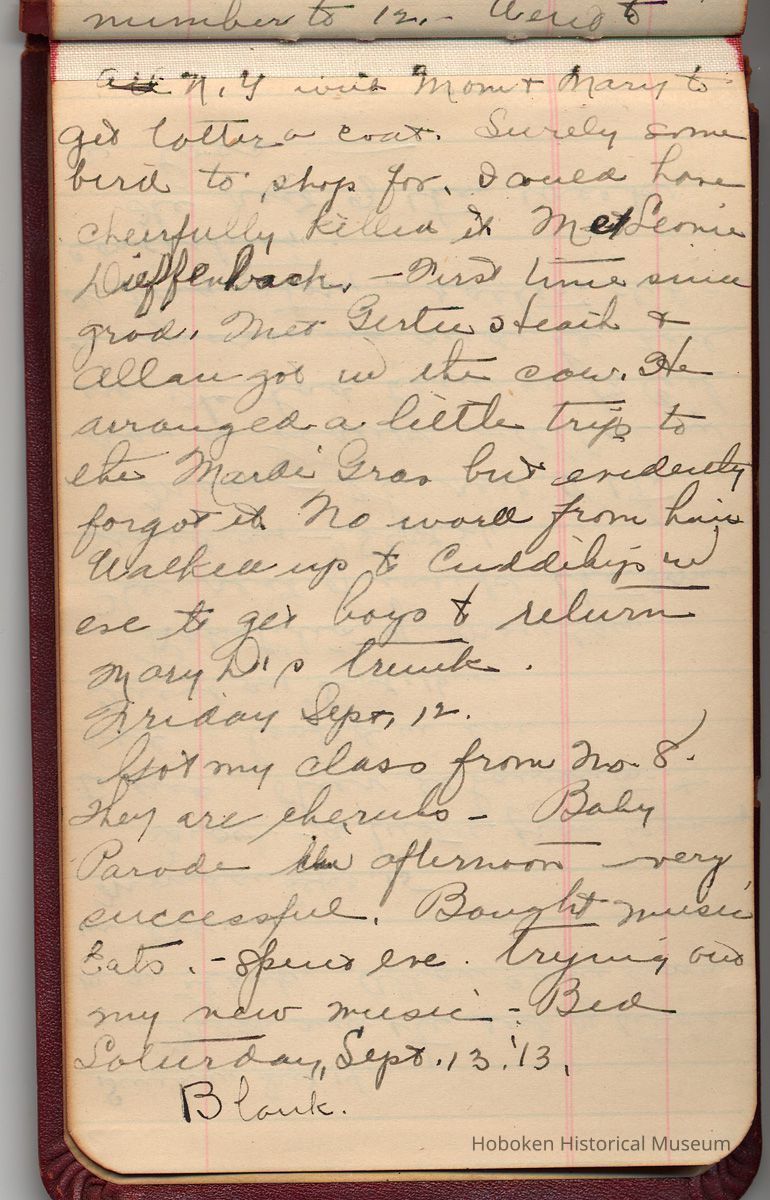 number to 12. - Went to
N. Y with Mom + Mary to
get latter a coat. Surely some
bird to shop for. I could have
cheerfully killed it. Met Leonie
Dieffenback. - First time since
grad. Met Gertie Heath +
Allan got in the car. He
arranged a little trip to
the Mardi Gras but evidently
forgot it. No word from him
Walked up to Cuddihys in
eve to get boys & return
Mary D's trunk.
Friday Sept, 12.
Got my class from No. 8.
They are cherubs - Baby
Parade in afternoon - very
successful. Bought music
Eats. - Spent eve. trying out
my new music - Bed
Saturday, Sept. 13. '13.
Blank.
Hoboken Historical Museum